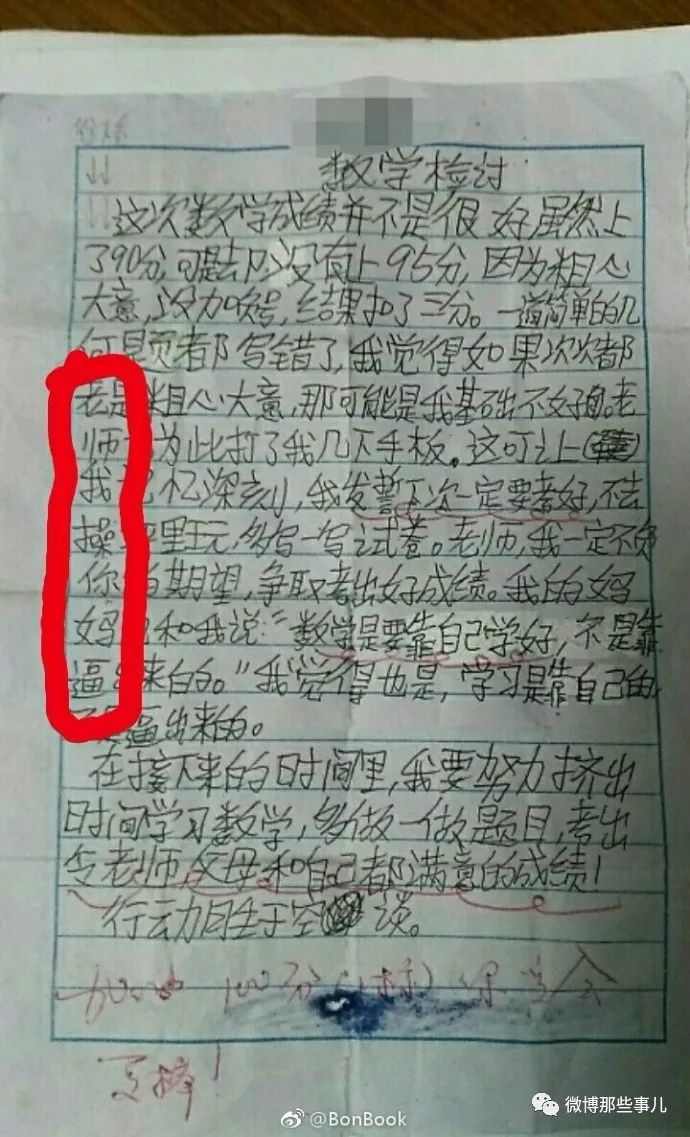 ↓↓ 数学检讨
↓↓ 这次数学成绩并不是很好,虽然上
了90分,可是却没有上95分,因为粗心
大意,没加单位,结果扣了三分。一道简单的几
何题页都写错了,我觉得如果次次都
老是粗心大意,那可能是我基础不好。老
师为此打了我几下手板。这可让
我记忆深刻,我发誓下次一定要考好,不去
操里玩,多写一写试卷。老师,我一定不负
你的期望,争取考出好成绩。我的妈
妈也和我说:“数学是要靠自己学好,不是靠
逼出来的。”我觉得也是,学习是靠自己的,
不是逼出来的。
在接下来的时间里,我要努力挤出
时间学习数学,多做一做题目,考出
令老师,父母和自己都满意的成绩!
行动胜于空谈。
加油 100分
更棒!
@BonBook
微博那些事儿